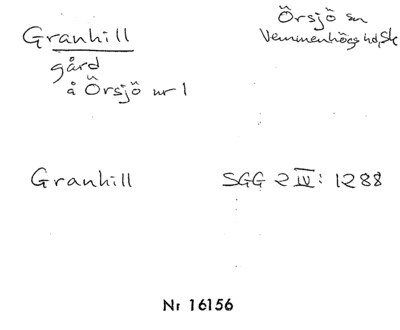 Granhill
gård
å Örsjö nr 1
Örsjö sn
Vemmenhögs hd, Sk
Granhill
SGG 2 IV: 1288
Nr 16156